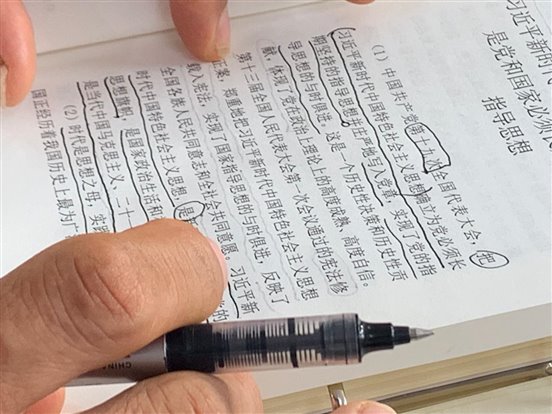 习近平新时
是党和国家必须
指导思想
(1) 中国共产党第十九次全国代表大会,把
习近平新时代中国特色社会主义思想确立为党必须长
期坚持的指导思想并庄严地写入党章,实现了党的指
导思想的与时俱进。这是一个历史性决策和历史性贡
献,体现了党在政治上理论上的高度成熟、高度自信。
第十三届全国人民代表大会第一次会议通过的宪法修
正案,郑重地把习近平新时代中国特色社会主义思想
载入宪法,实现了国家指导思想的与时俱进,反映了
全国各族人民共同意志和全社会共同意愿。习近平新
时代中国特色社会主义思想,是 党的
思想旗帜,是国家政治生活和
是当代中国马克思主义、二十一
(2) 时代是思想之母,实践
国正经历着我国历史上最为广
CHINA